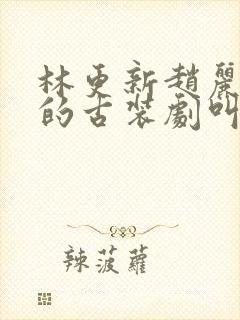 林更新趙麗
的古裝劇叫
辣菠蘿